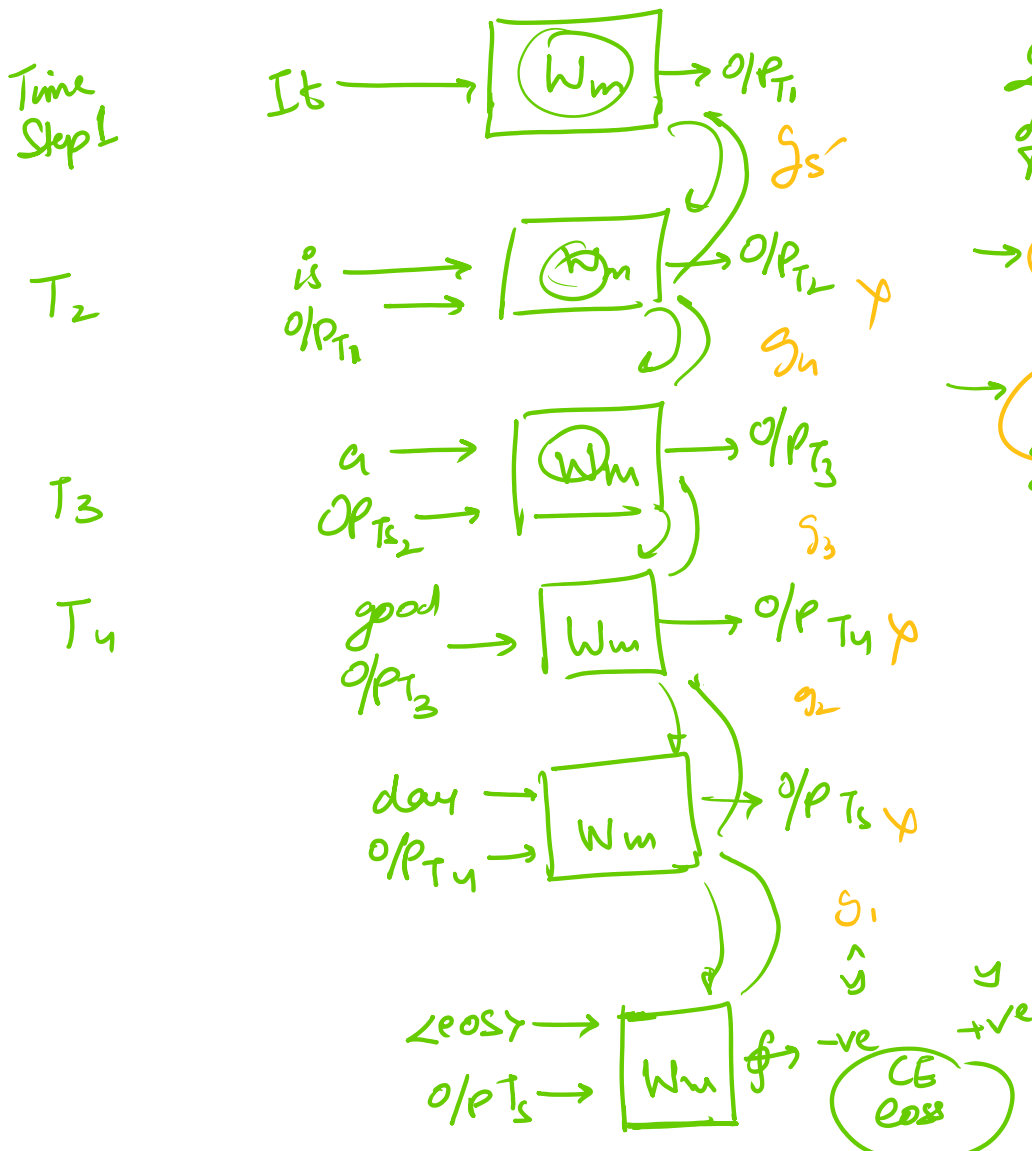 Time
Step 1
It
Wm
O/P T1
g5
T2
is
O/P T1
Wm
O/P T2
g4
T3
a
OP Ts2
Wm
O/P T3
g3
T4
good
O/P T3
Wm
O/P T4
g2
day
O/P T4
Wm
O/P T5
g1
ŷ
y
<eos>
O/P T5
Wm
-ve
+ve
CE
loss